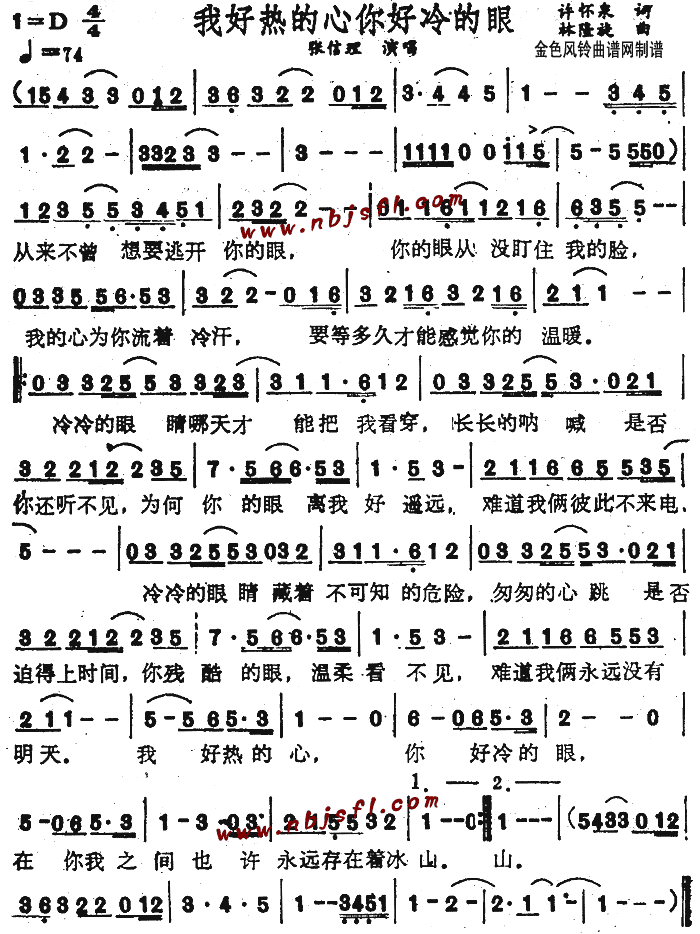 1=D 4/4 我好热的心你好冷的眼 许怀泉 词
♩=74 张信理 演唱 林隆旋 曲
金色风铃曲谱网制谱
(15 4 3 3 0 1 2 | 3 6 3 2 2 0 1 2 | 3 · 4 4 5 | 1 - - 3 4 5 |
1 · 2 2 - | 3 3 2 3 3 - - | 3 - - - | 1 1 1 1 0 0 i 1 5 | 5 - 5 5 5 0) |
1 2 3 5 5 3 4 5 1 | 2 3 2 2 - - | 0 1 1 6 1 1 2 1 6 | 6 3 5 5 - - |
www.nbjsfl.com
从来不曾 想要逃开 你的眼, 你的眼从 没盯住 我的脸,
0 3 3 5 5 6 · 5 3 | 3 2 2 - 0 1 6 | 3 2 1 6 3 2 1 6 | 2 1 1 - - |
我的心为你流着 冷汗, 要等多久才能感觉你的 温暖。
0 3 3 2 5 5 3 3 2 3 | 3 1 1 · 6 1 2 | 0 3 3 2 5 5 3 · 0 2 1 |
冷冷的眼 睛哪天才 能把 我看穿, 长长的呐 喊 是否
3 2 2 1 1 2 2 3 5 | 7 · 5 6 6 · 5 3 | 1 · 5 3 - | 2 1 1 6 6 5 5 3 5 |
你还听不见,为何 你 的眼 离我 好 遥远, 难道我俩彼此不来电,
5 - - - | 0 3 3 2 5 5 3 0 3 2 | 3 1 1 · 6 1 2 | 0 3 3 2 5 5 3 · 0 2 1 |
冷冷的眼 睛 藏着 不可知 的危险, 匆匆的心 跳 是否
3 2 2 1 1 2 2 3 5 | 7 · 5 6 6 · 5 3 | 1 · 5 3 - | 2 1 1 6 6 5 5 5 3 |
迫得上时间,你残 酷 的眼, 温柔 看 不见, 难道我俩永远没有
2 1 1 - - | 5 - 5 6 5 · 3 | 1 - - 0 | 6 - 0 6 5 · 3 | 2 - - 0 |
明天。 我 好热 的 心, 你 好冷 的 眼,
1. 2.
5 - 0 6 5 · 3 | 1 - 3 - 0 3 | 2 2 5 5 3 2 | 1 - - 0 :| 1 - - | (5 4 3 3 0 1 2 |
www.nbjsfl.com
在 你我 之 间 也 许 永远存在着冰 山。 山。
3 6 3 2 2 0 1 2 | 3 · 4 · 5 | 1 - - 3 4 5 1 | 1 - 2 - | 2 · 1 1 · | 1 - - - ) ||